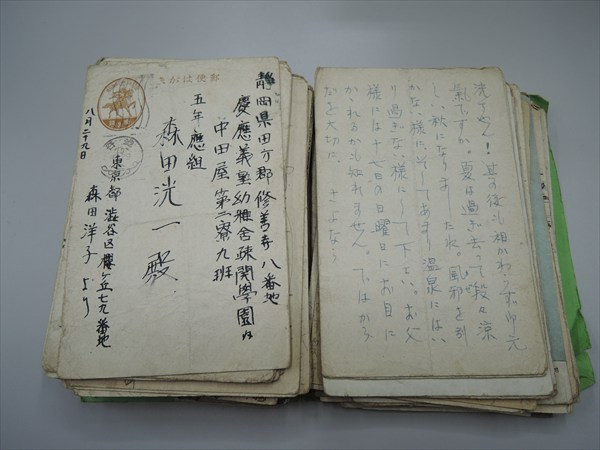 郵便はがき
靜岡県田方郡修善寺八番地
慶應義塾幼稚舎疎開學園内
中田屋第二寮九班
五年應組
森田洸一殿
東京都澁谷区櫻ヶ丘七九番地
森田洋子より
八月二十九日
洸ちゃん!其の後も相かわらず御元
氣ですか。夏は過ぎ去って段々涼
しい秋になりましたね。風邪を引
かない様に、そしてあまり温泉にはい
り過ぎない様にして下さい。お父
様には十七日の日曜日にお目に
かゝれるかも知れません。ではから
だを大切に さよなら